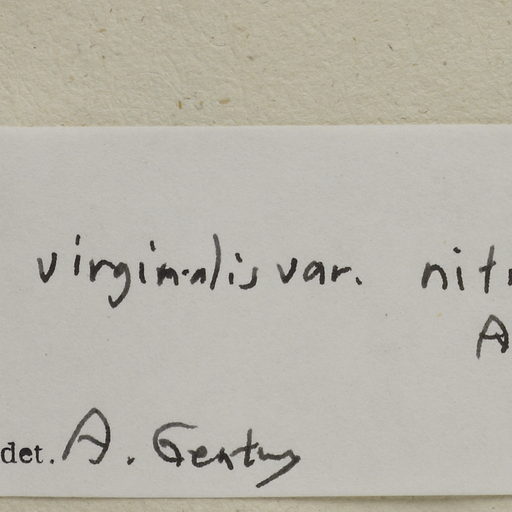 virginalis var. nitr
A
det. A. Gentry